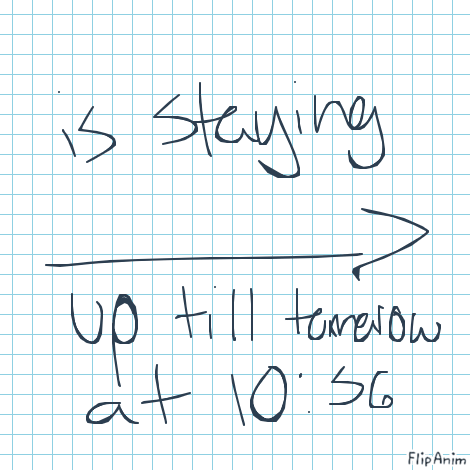 is staying
up till tomorow
at 10:56
FlipAnim